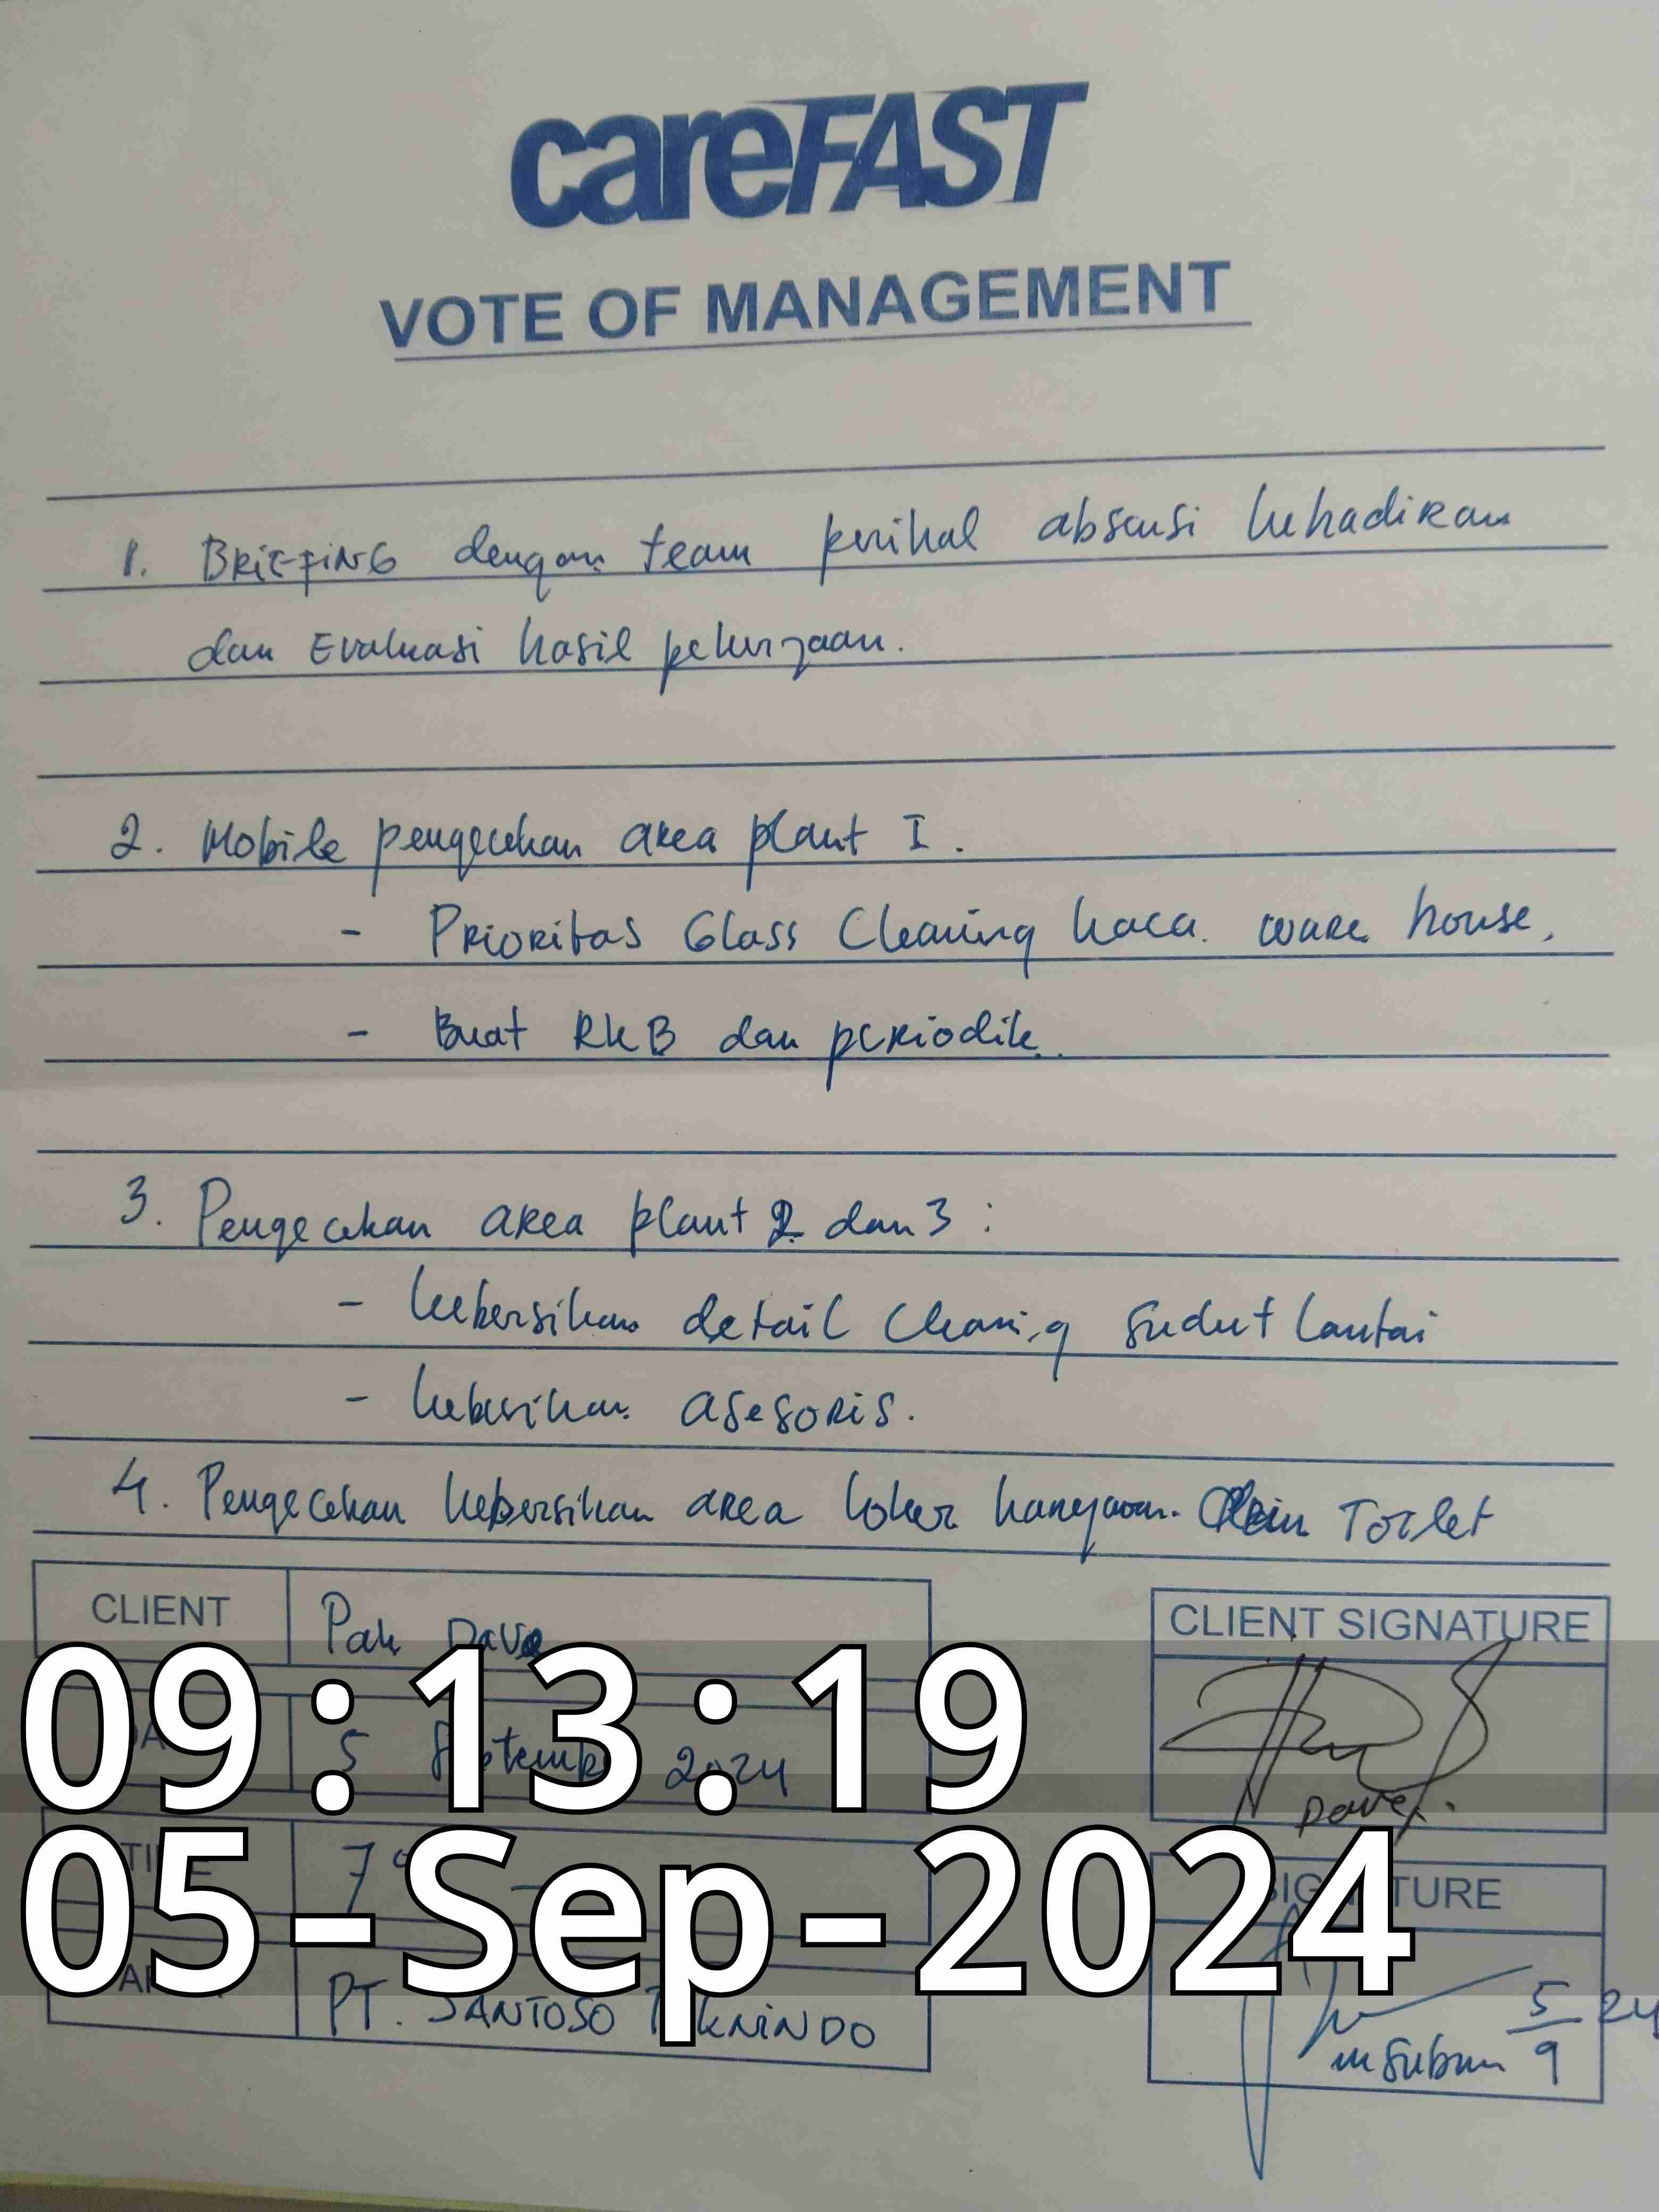 careFAST
VOTE OF MANAGEMENT
1. BRIEFING dengan team perihal absensi kehadiran
dan Evaluasi hasil pekerjaan.
2. Mobile pengecekan area plant I.
- Prioritas Glass Cleaning kaca ware house,
- Buat RKB dan periodik.
3. Pengecekan area plant 2 dan 3 :
- kebersihan detail Cleaning sudut lantai
- kebersihan asesoris.
4. Pengecekan kebersihan area loker karyawan. Toilet
CLIENT
Pak Dave
CLIENT SIGNATURE
09:13:19
5 September 2024
Dave
05-Sep-2024
SIGNATURE
PT. SANTOSO TEKNINDO
5/9 24